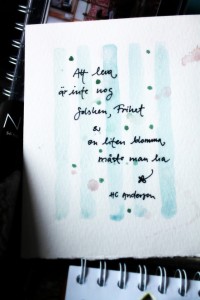 Att leva,
är inte nog
Solsken, Frihet
&
en liten blomma
måste man ha
HC Andersen